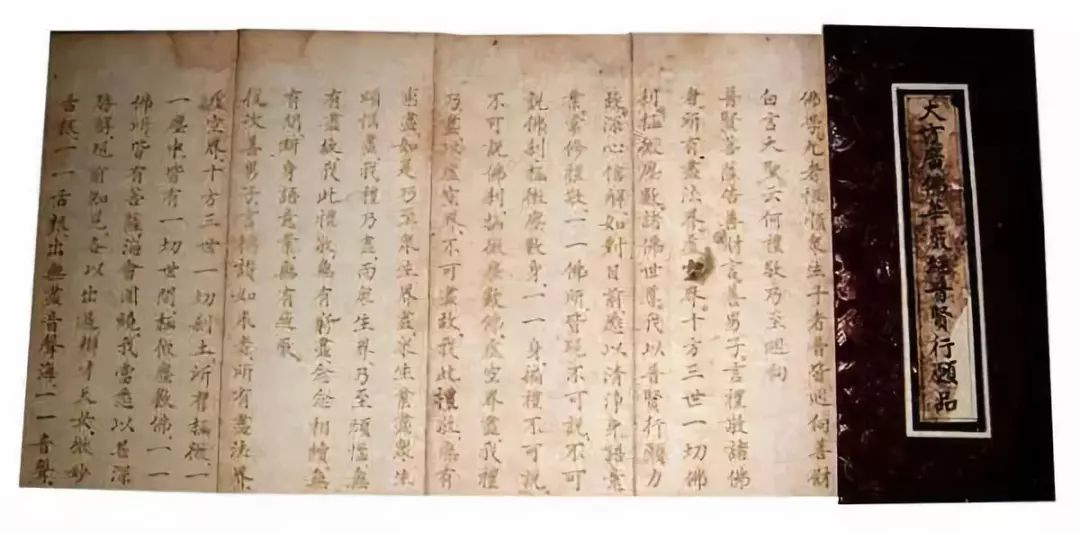 大方廣佛華嚴經普賢行願品
佛學九者恒順眾生十者普皆迴向善財
白言大聖云何禮敬乃至迴向
普賢菩薩告善財言善男子言禮敬諸佛
者所有盡法界虛空界十方三世一切佛
剎極微塵數諸佛世尊我以普賢行願力
故深心信解如對目前悉以清淨身語意
業常修禮敬一一佛所皆現不可說不可
說佛剎極微塵數身一一身遍禮不可說
不可說佛剎極微塵數佛虛空界盡我禮
乃盡以虛空界不可盡故我此禮敬無有
窮盡如是乃至眾生界盡眾生業盡眾生
煩惱盡我禮乃盡而眾生界乃至煩惱無
有盡故我此禮敬無有窮盡念念相續無
有間斷身語意業無有疲厭
復次善男子言稱讚如來者所有盡法界
虛空界十方三世一切剎土所有極微一
一塵中皆有一切世間極微塵數佛一一
佛所皆有菩薩海會圍繞我當悉以甚深
勝解現前知見各以出過辯才天女微妙
舌根一一舌根出無盡音聲海一一音聲